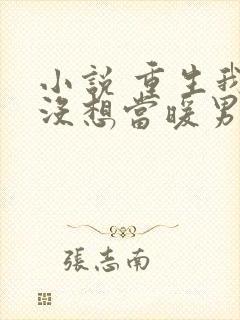 小說 重生我
沒想當暖男
張志南